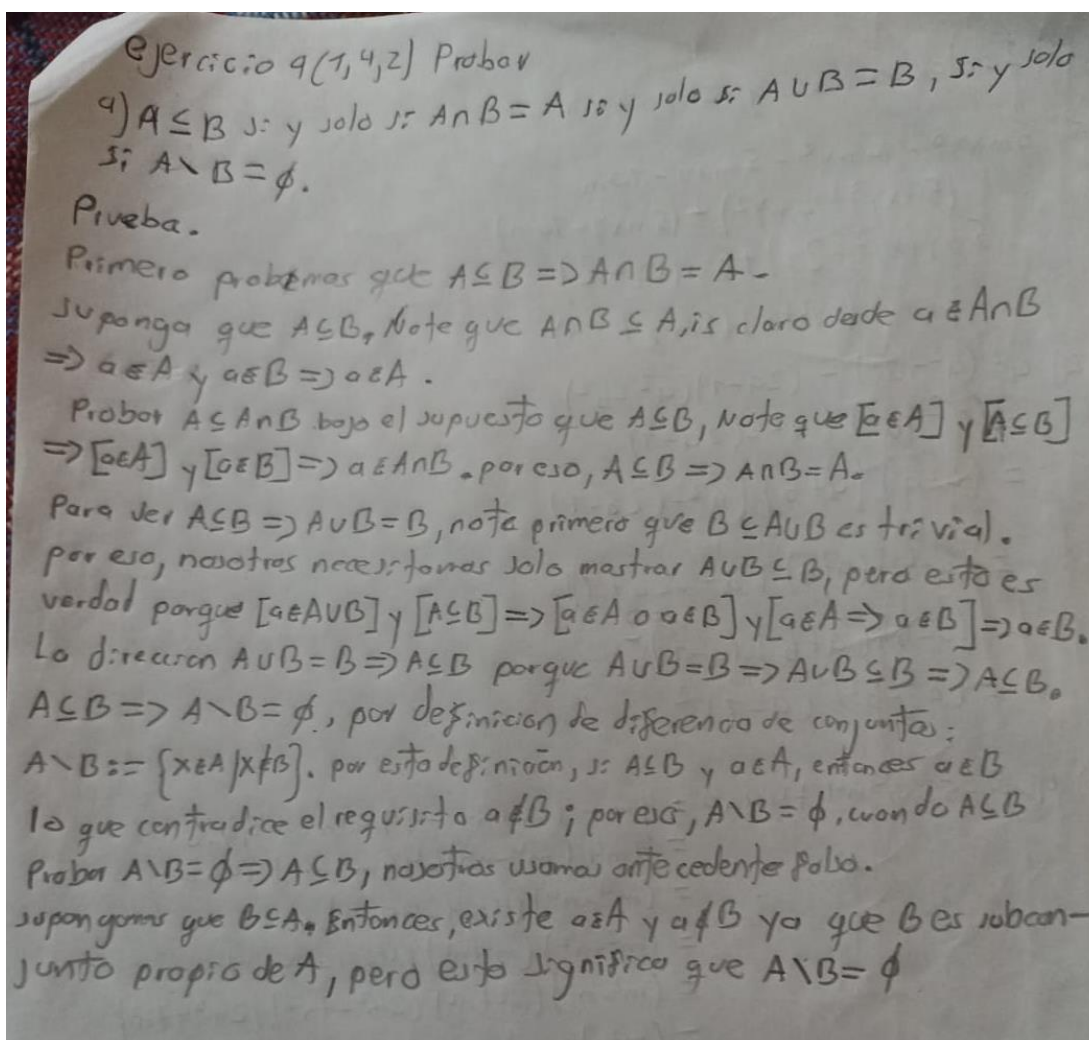 ejercicio 9(1,4,2) Probar
a) A ⊆ B si y solo si A∩B = A si y solo si A∪B = B, si y solo
si A∖B = ϕ.
Prueba.
Primero probemos que A⊆B => A∩B = A.
suponga que A⊆B, Note que A∩B ⊆ A, is claro desde a ∈ A∩B
=> a∈A y a∈B => a∈A.
Probar A⊆A∩B bajo el supuesto que A⊆B, Note que [a∈A] y [A⊆B]
=> [a∈A] y [a∈B] => a∈A∩B. por eso, A⊆B => A∩B=A.
Para ver A⊆B => A∪B=B, note primero que B⊆A∪B es trivial.
por eso, nosotros necesitamos solo mostrar A∪B⊆B, pero esto es
verdad porque [a∈A∪B] y [A⊆B] => [a∈A o a∈B] y [a∈A => a∈B] => a∈B.
La direccion A∪B=B => A⊆B porque A∪B=B => A∪B⊆B => A⊆B.
A⊆B => A∖B=ϕ, por definicion de diferencia de conjuntos:
A∖B := {x∈A|x∉B}. por esta definición, si A⊆B y a∈A, entonces a∈B
lo que contradice el requisito a∉B; por eso, A∖B=ϕ, cuando A⊆B
Probar A∖B=ϕ => A⊆B, nosotros usamos antecedente falso.
supongamos que B⊆A. Entonces, existe a∈A y a∉B ya que B es subcon-
junto propio de A, pero esto significa que A∖B = ϕ